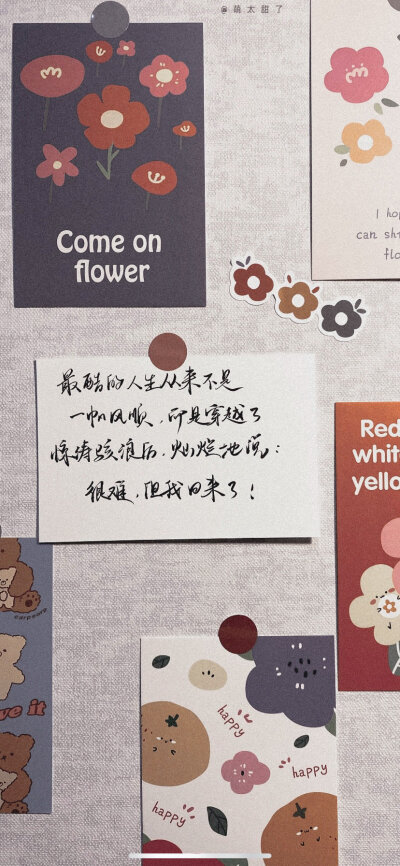 @萌太甜了
Come on
flower
I hop
can sh
flo
最酷的人生从来不是
一帆风顺，而是穿越了
惊涛骇浪后，灿烂地说：
很难，但我回来了！
Red
white
yello
earpearp
ve it
happy
happy
happy